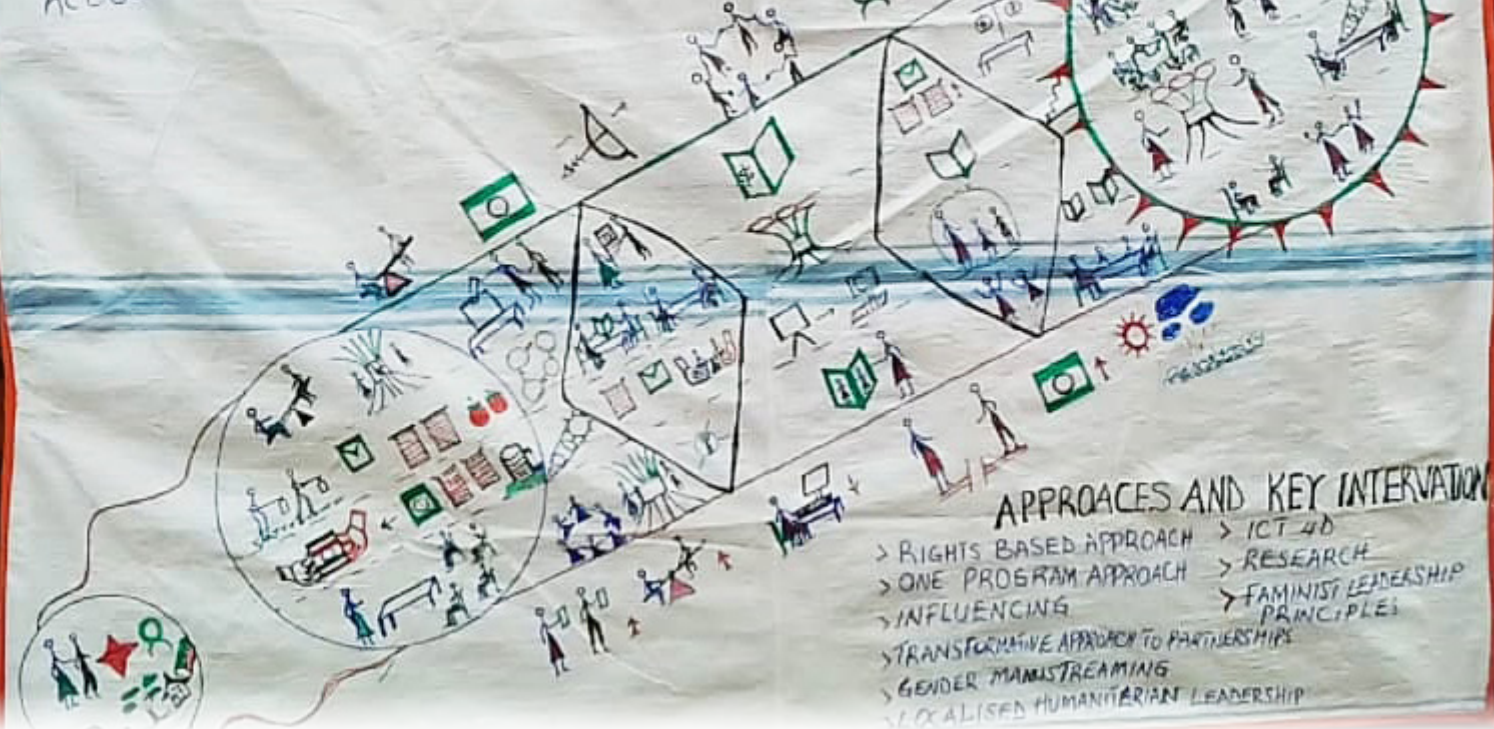 APPROACES AND KEY INTERVATION
> RIGHTS BASED APPROACH
> ONE PROGRAM APPROACH
> INFLUENCING
> TRANSFORMATIVE APPROACH TO PARTNERSHIPS
> GENDER MAINSTREAMING
> LOCALISED HUMANITARIAN LEADERSHIP
> ICT 4D
> RESEARCH
> FAMINIST LEADERSHIP
PRINCIPLES